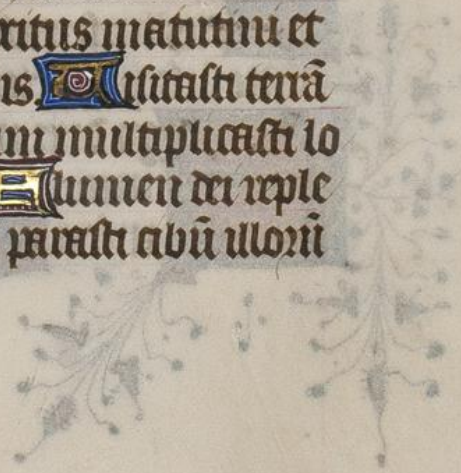 ritus matutini et
ns. Visitasti terrã
m multiplicasti lo
Flumen dei reple
parasti cibũ illorũ